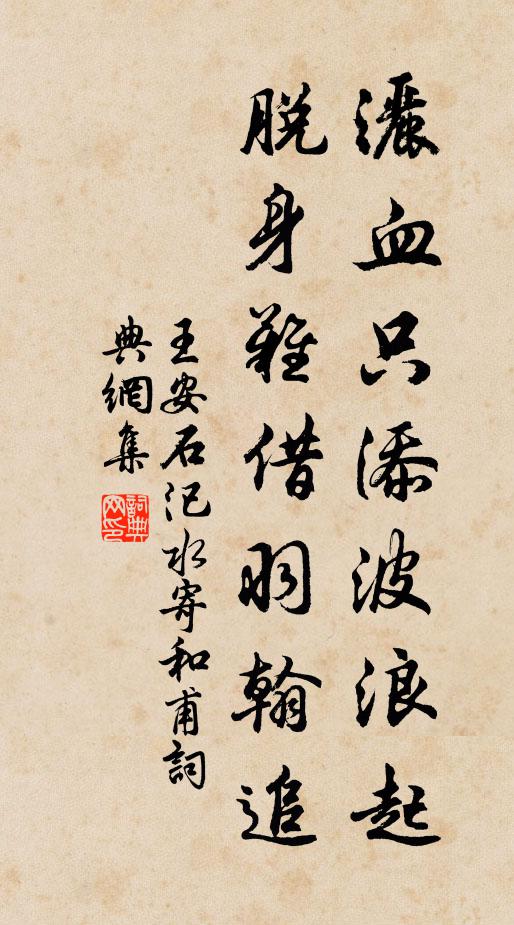 灑血只添波浪起
脫身難借羽翰追
王安石氾水寄和甫詞
典網集
詞典網印